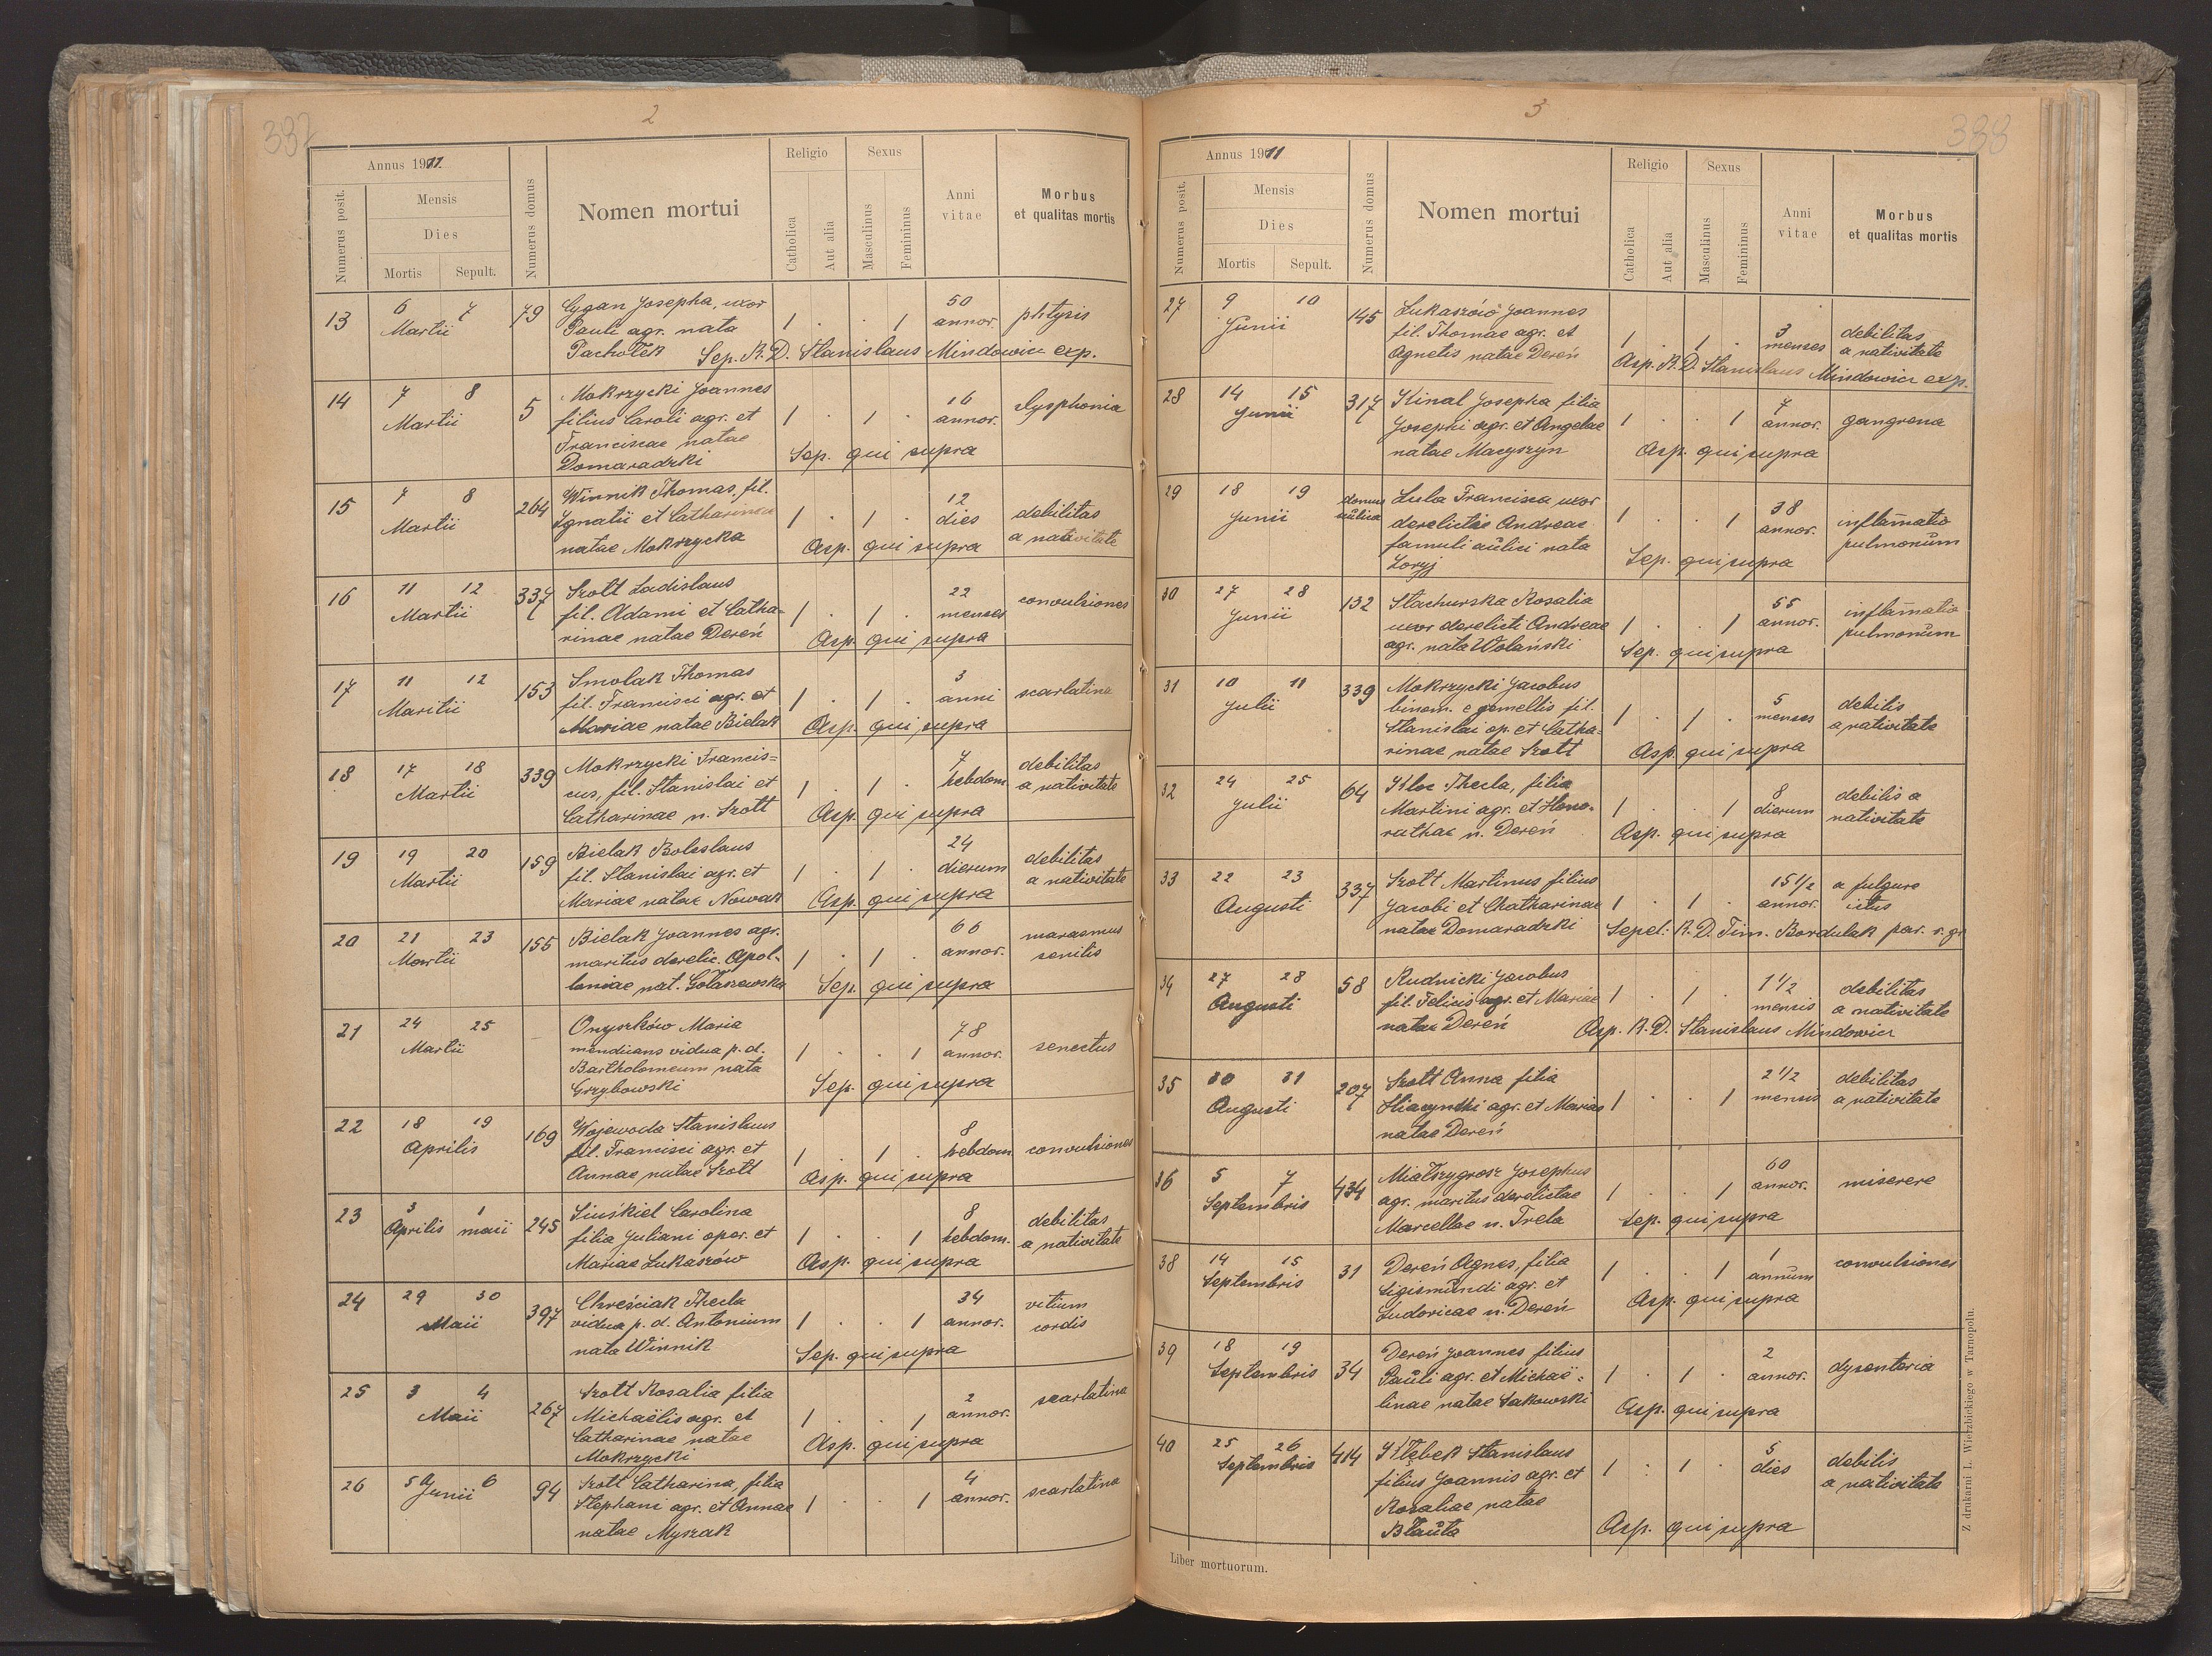 337
2
Annus 1911.
Numerus posit.
Mensis
Dies
Mortis Sepult.
Numerus domus
Nomen mortui
Religio
Catholica
Aut alia
Sexus
Masculinus
Femininus
Anni vitae
Morbus et qualitas mortis
13 6 7 Martii 79 Cygan Josepha, uxor 1 . . 1 50 annor. phtysis
Pauli agr. nata
Pachołek Sep. R. D. Stanislaus Mindowicz exp.
14 7 8 Martii 5 Mokrzycki Joannes 1 . 1 . 16 annor. dysphonia
filius Caroli agr. et
Franciscae natae
Domaradzki Sep. qui supra
15 7 8 Martii 264 Winnik Thomas, fil. 1 . 1 . 12 dies debilitas a nativitate
Ignatii et Catharinea
natae Mokrzycka Asp. qui supra
16 11 12 Martii 337 Szott Ladislaus 1 . 1 . 22 menses convulsiones
fil. Adami et Catha-
rinae natae Dereń Asp. qui supra
17 11 12 Martii 153 Smolak Thomas 1 . 1 . 3 anni scarlatina
fil. Francisci agr. et
Mariae natae Bielak Asp. qui supra
18 17 18 Martii 339 Mokrzycki Francis= 1 . 1 . 7 hebdom. debilitas a nativitate
cus, fil. Stanislai et
Catharinae n. Szott Asp. qui supra
19 19 20 Martii 159 Bielak Boleslaus 1 . 1 . 24 dierum debilitas a nativitate
fil. Stanislai agr. et
Mariae natae Nowak Asp. qui supra
20 21 23 Martii 155 Bielak Joannes agr. 1 . 1 . 66 annor. marasmus senilis
maritus derelic. Apol-
loniae nat. Gołaszewska Sep. qui supra
21 24 25 Martii Onyszków Maria 1 . . 1 78 annor. senectus
mendicans vidua p. d.
Bartholomeum nata
Grzybowski Sep. qui supra
22 18 19 Aprilis 169 Wojewoda Stanislaus 1 . 1 . 8 hebdom. convulsiones
fil. Francisci agr. et
Annae natae Szott Asp. qui supra
23 3 Aprilis 1 maii 245 Siuśkiel Carolina 1 . . 1 8 hebdom. debilitas a nativitate
filia Juliani oper. et
Mariae Lukaszów Asp. qui supra
24 29 30 Maii 397 Chreściak Thecla 1 . . 1 34 annor. vitium cordis
vidua p. d. Antonium
nata Winnik Sep. qui supra
25 3 4 Maii 267 Szott Rosalia filia 1 . . 1 2 annor. scarlatina
Michaëlis agr. et
Catharinae natae
Mokrzycki Asp. qui supra
26 5 6 Junii 94 Szott Catharina, filia 1 . . 1 4 annor. scarlatina
Stephani agr. et Annae
natae Myszak
338
3
Annus 1911
Numerus posit.
Mensis
Dies
Mortis Sepult.
Numerus domus
Nomen mortui
Religio
Catholica
Aut alia
Sexus
Masculinus
Femininus
Anni vitae
Morbus et qualitas mortis
27 9 10 Junii 145 Lukaszów Joannes 1 . 1 . 3 menses debilitas a nativitate
fil. Thomae agr. et
Agnetis natae Dereń Asp. R. D. Stanislaus Mindowicz exp.
28 14 15 Junii 317 Kinal Josepha filia 1 . . 1 7 annor. gangrena
Josephi agr. et Angelae
natae Macyszyn Asp. qui supra
29 18 19 Junii domus aulica Lula Francisca uxor 1 . . 1 38 annor. inflamatio pulmonum
derelictis Andreae
famuli aulici nata
Zoryj Sep. qui supra
30 27 28 Junii 132 Stachurska Rosalia 1 . . 1 55 annor. inflamatio pulmonum
uxor derelicti Andreae
agr. nata Wolański Sep. qui supra
31 10 11 Julii 339 Mokrzycki Jacobus 1 . 1 . 5 menses debilis a nativitate
binom. e gemellis fil.
Stanislai op. et Catha-
rinae natae Szott Asp. qui supra
32 24 25 Julii 64 Kloc Thecla, filia 1 . . 1 8 dierum debilis a nativitate
Martini agr. et Hono-
rathae n. Dereń Asp. qui supra
33 22 23 Augusti 337 Szott Martinus filius 1 . 1 . 15 1/2 annor. a fulgure ictus
Jacobi et Chatharinae
natae Domaradzki Sepel. R. D. Tim. Bordulak par. r. gr.
34 27 28 Augusti 58 Rudnicki Jacobus 1 . 1 . 1 1/2 mensis debilitas a nativitate
fil. Felicis agr. et Mariae
natae Dereń Asp. R. D. Stanislaus Mindowicz
35 30 31 Augusti 207 Szott Anna filia 1 . . 1 2 1/2 mensis debilitas a nativitate
Hiacynthi agr. et Mariae
natae Dereń
36 5 7 Septembris 434 Miałszygrosz Josephus 1 . . 1 60 annor. miserere
agr. maritus derelictae
Marcellae n. Trela Sep. qui supra
38 14 15 Septembris 31 Dereń Agnes, filia 1 . . 1 1 annum convulsiones
Sigismundi agr. et
Ludovicae n. Dereń Asp. qui supra
39 18 19 Septembris 34 Dereń Joannes filius 1 . 1 . 2 annor. dysenteria
Pauli agr. et Michaë-
linae natae Sakowski Asp. qui supra
40 25 26 Septembris 414 Kłębek Stanislaus 1 . 1 . 5 dies debilis a nativitate
filius Joannis agr. et
Rosaliae natae
Błauta Asp. qui supra
Liber mortuorum.
Z drukarni L. Wierzbickiego w Tarnopolu.